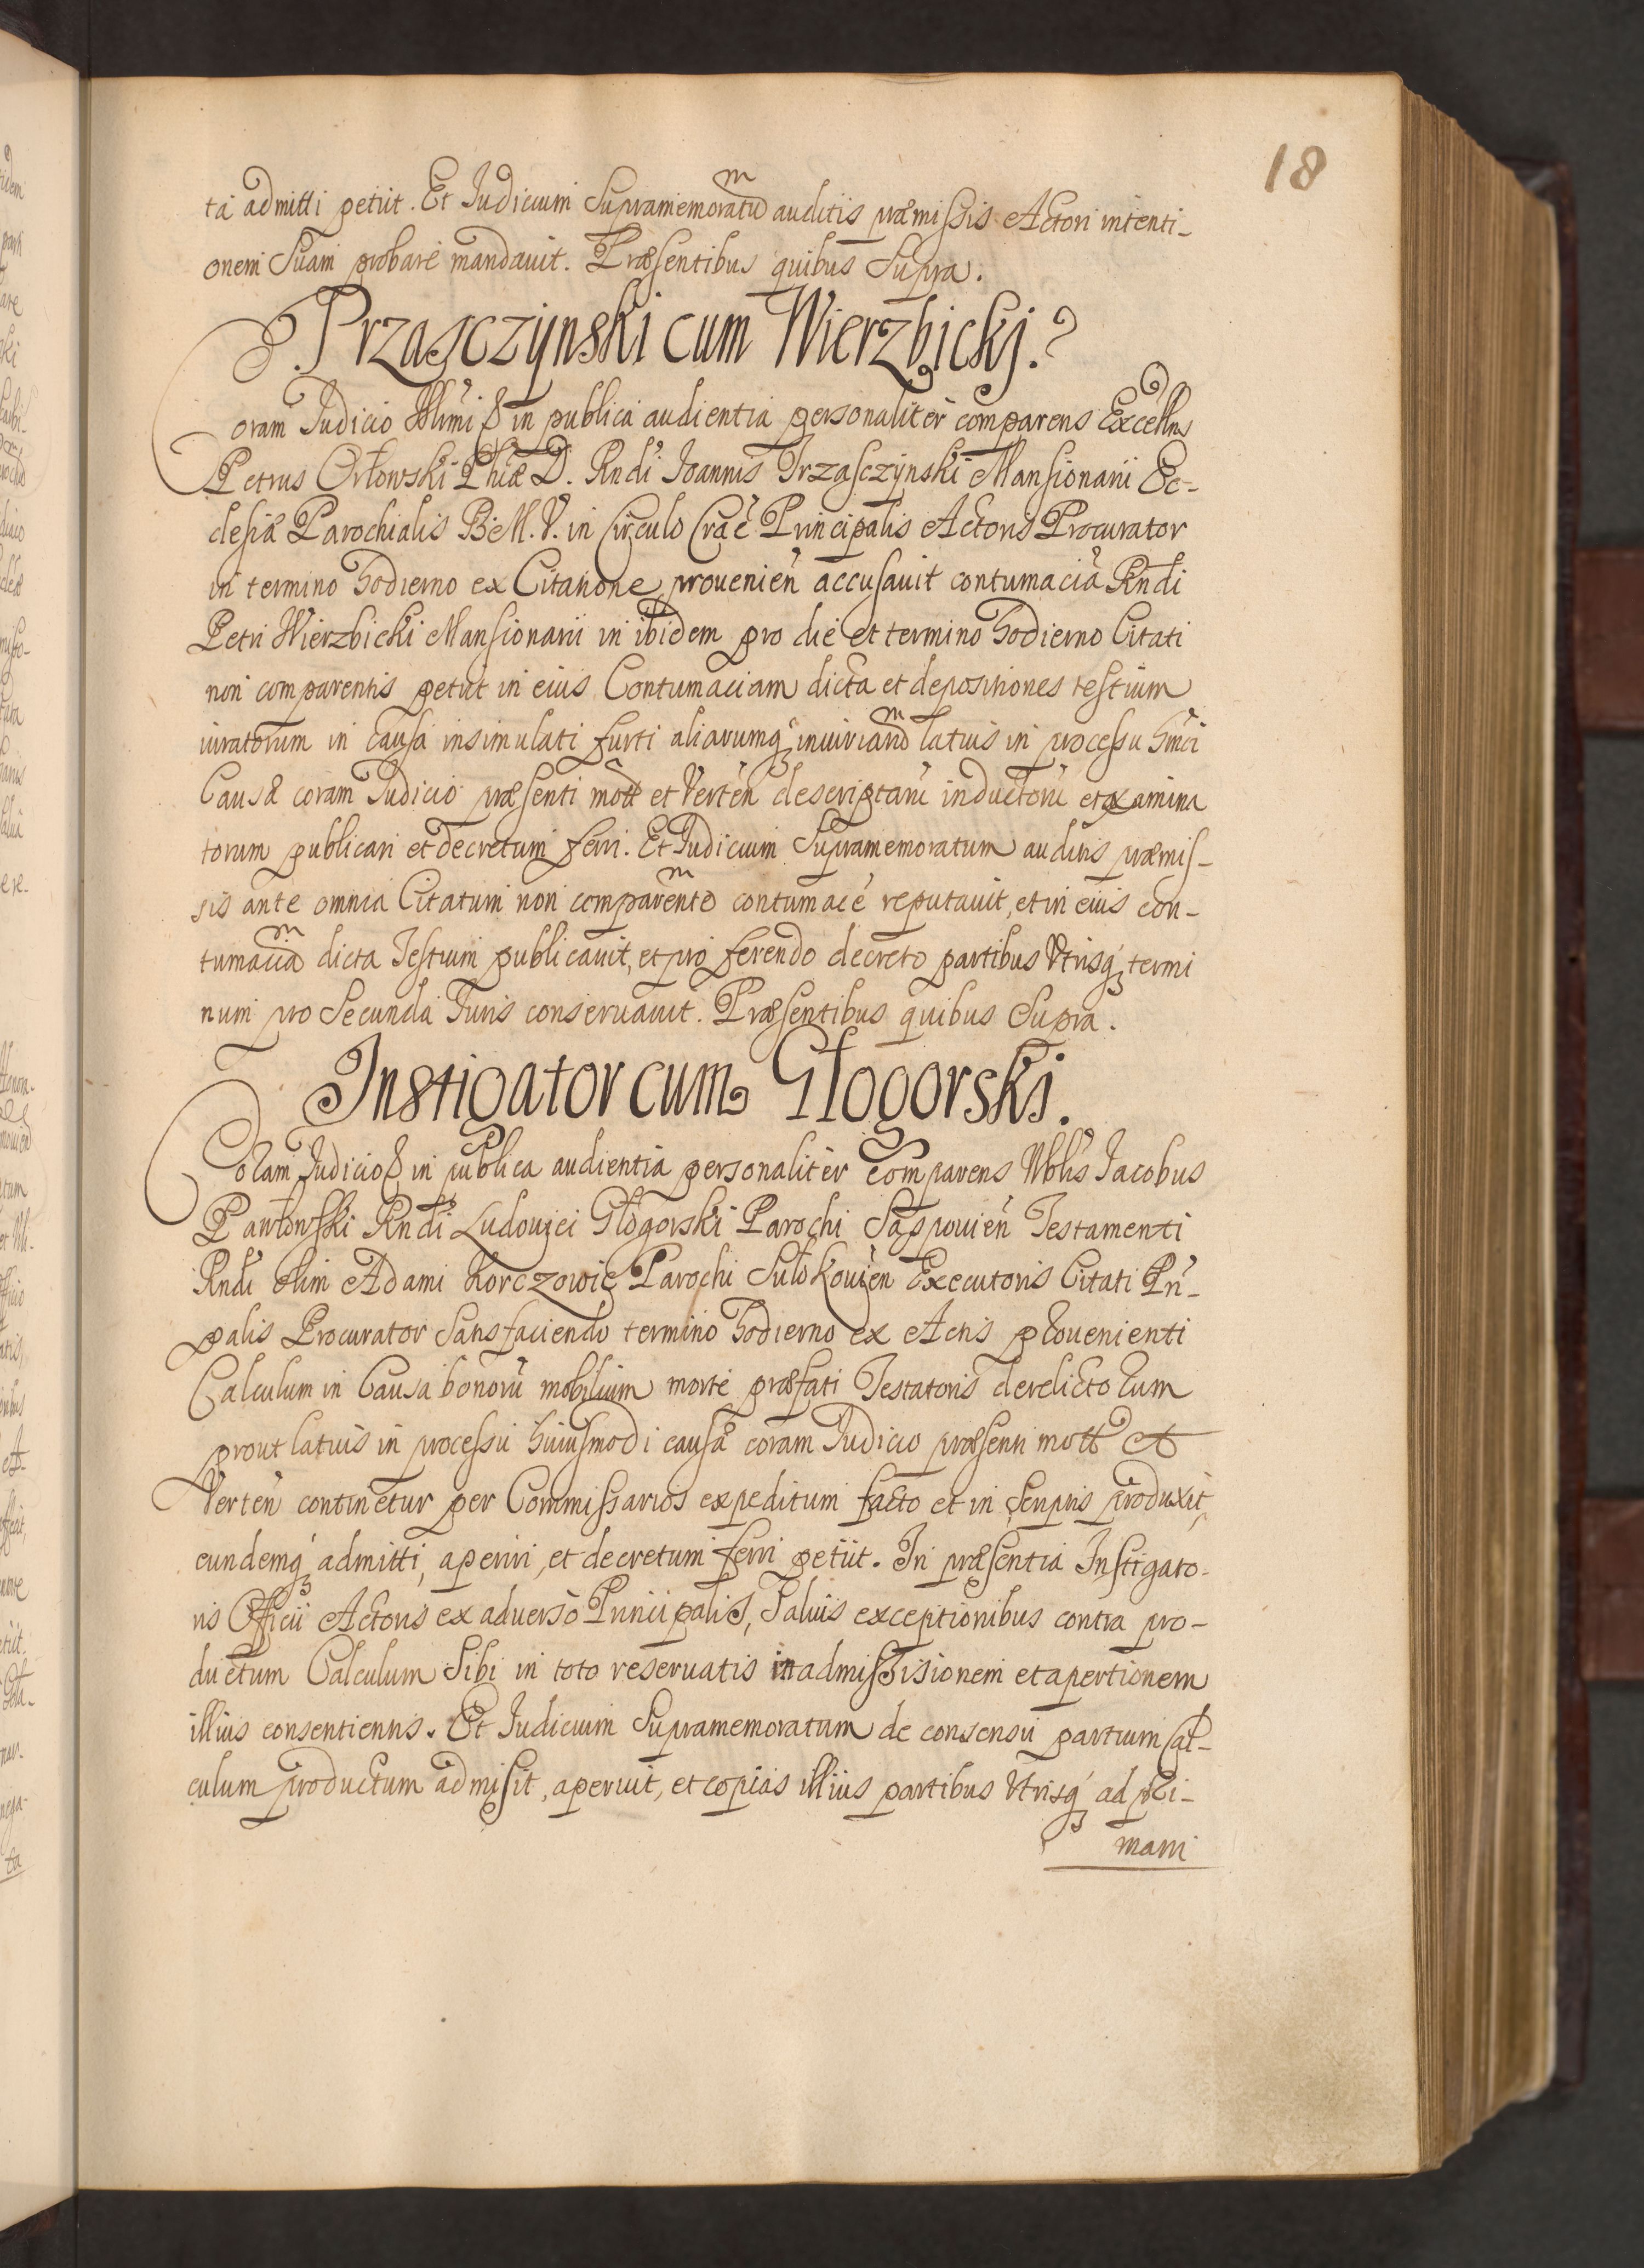 18
ta admitti petiit. Et Judicium Supramemoratũ auditis præmissis Actori intenti-
onem Suam probare mandavit. Præsentibus quibus Supra.
Trzasczynski cum Wierzbickj.
Coram Judicio Illrimi & in publica audientia personaliter comparens Excellns
Petrus Orłowski Phiæ D. Rndi Joannis Trzasczynski Mansionarii Ec-
clesiæ Parochialis B. M. V. in Circulo Crac Principalis Actoris Procurator
in termino hodierno ex Citatione provenien accusavit contumaciã Rndi
Petri Wierzbicki Mansionarii in ibidem pro die et termino hodierno Citati
non comparentis petiit in eius Contumaciam dicta et depositiones testium
iuratorum in causa insimulati furti aliarumq iniuriarũ latius in processu huici
Causæ coram Judicio præsenti mott et Verten descriptarũ inductorũ et examina
torum publicari et decretum ferri. Et Judicium Supramemoratum auditis præmis-
sis ante omnia Citatum non comparente contumace reputavit, et in eius con-
tumaciã dicta Testium publicavit, et pro ferendo decreto partibus Utrisq termi
num pro Secunda Juris conservavit. Præsentibus quibus Supra.
Instigator cum Głogorskj.
Coram Judicio & in publica audientia personaliter comparens Nblis Jacobus
Pawłowski Rndi Ludovici Głogorski Parochi Sąspovien Testamenti
Rndi olim Adami Korczowic Parochi Sułkovien Executoris Citati Prin-
palis Procurator Satisfaciendo termino hodierno ex Actis provenienti
Calculum in Causa bonorũ mobilium morte præfati Testatoris derelictorum
prout latius in processu huiusmodi causæ coram Judicio præsenti mott et
Verten continetur per Commissarios expeditum facto et in scriptis produxit,
eundemq admitti, aperiri, et decretum ferri petiit. In præsentia Instigato-
ris Officii Actoris ex adverso Principalis, Salvis exceptionibus contra pro-
ductum Calculum Sibi in toto reservatis in admissisionem et apertionem
illius consentientis. Et Judicium Supramemoratum de consensu partium Cal-
culum productum admisit, aperuit, et copias illius partibus Utrisq ad pri-
mam